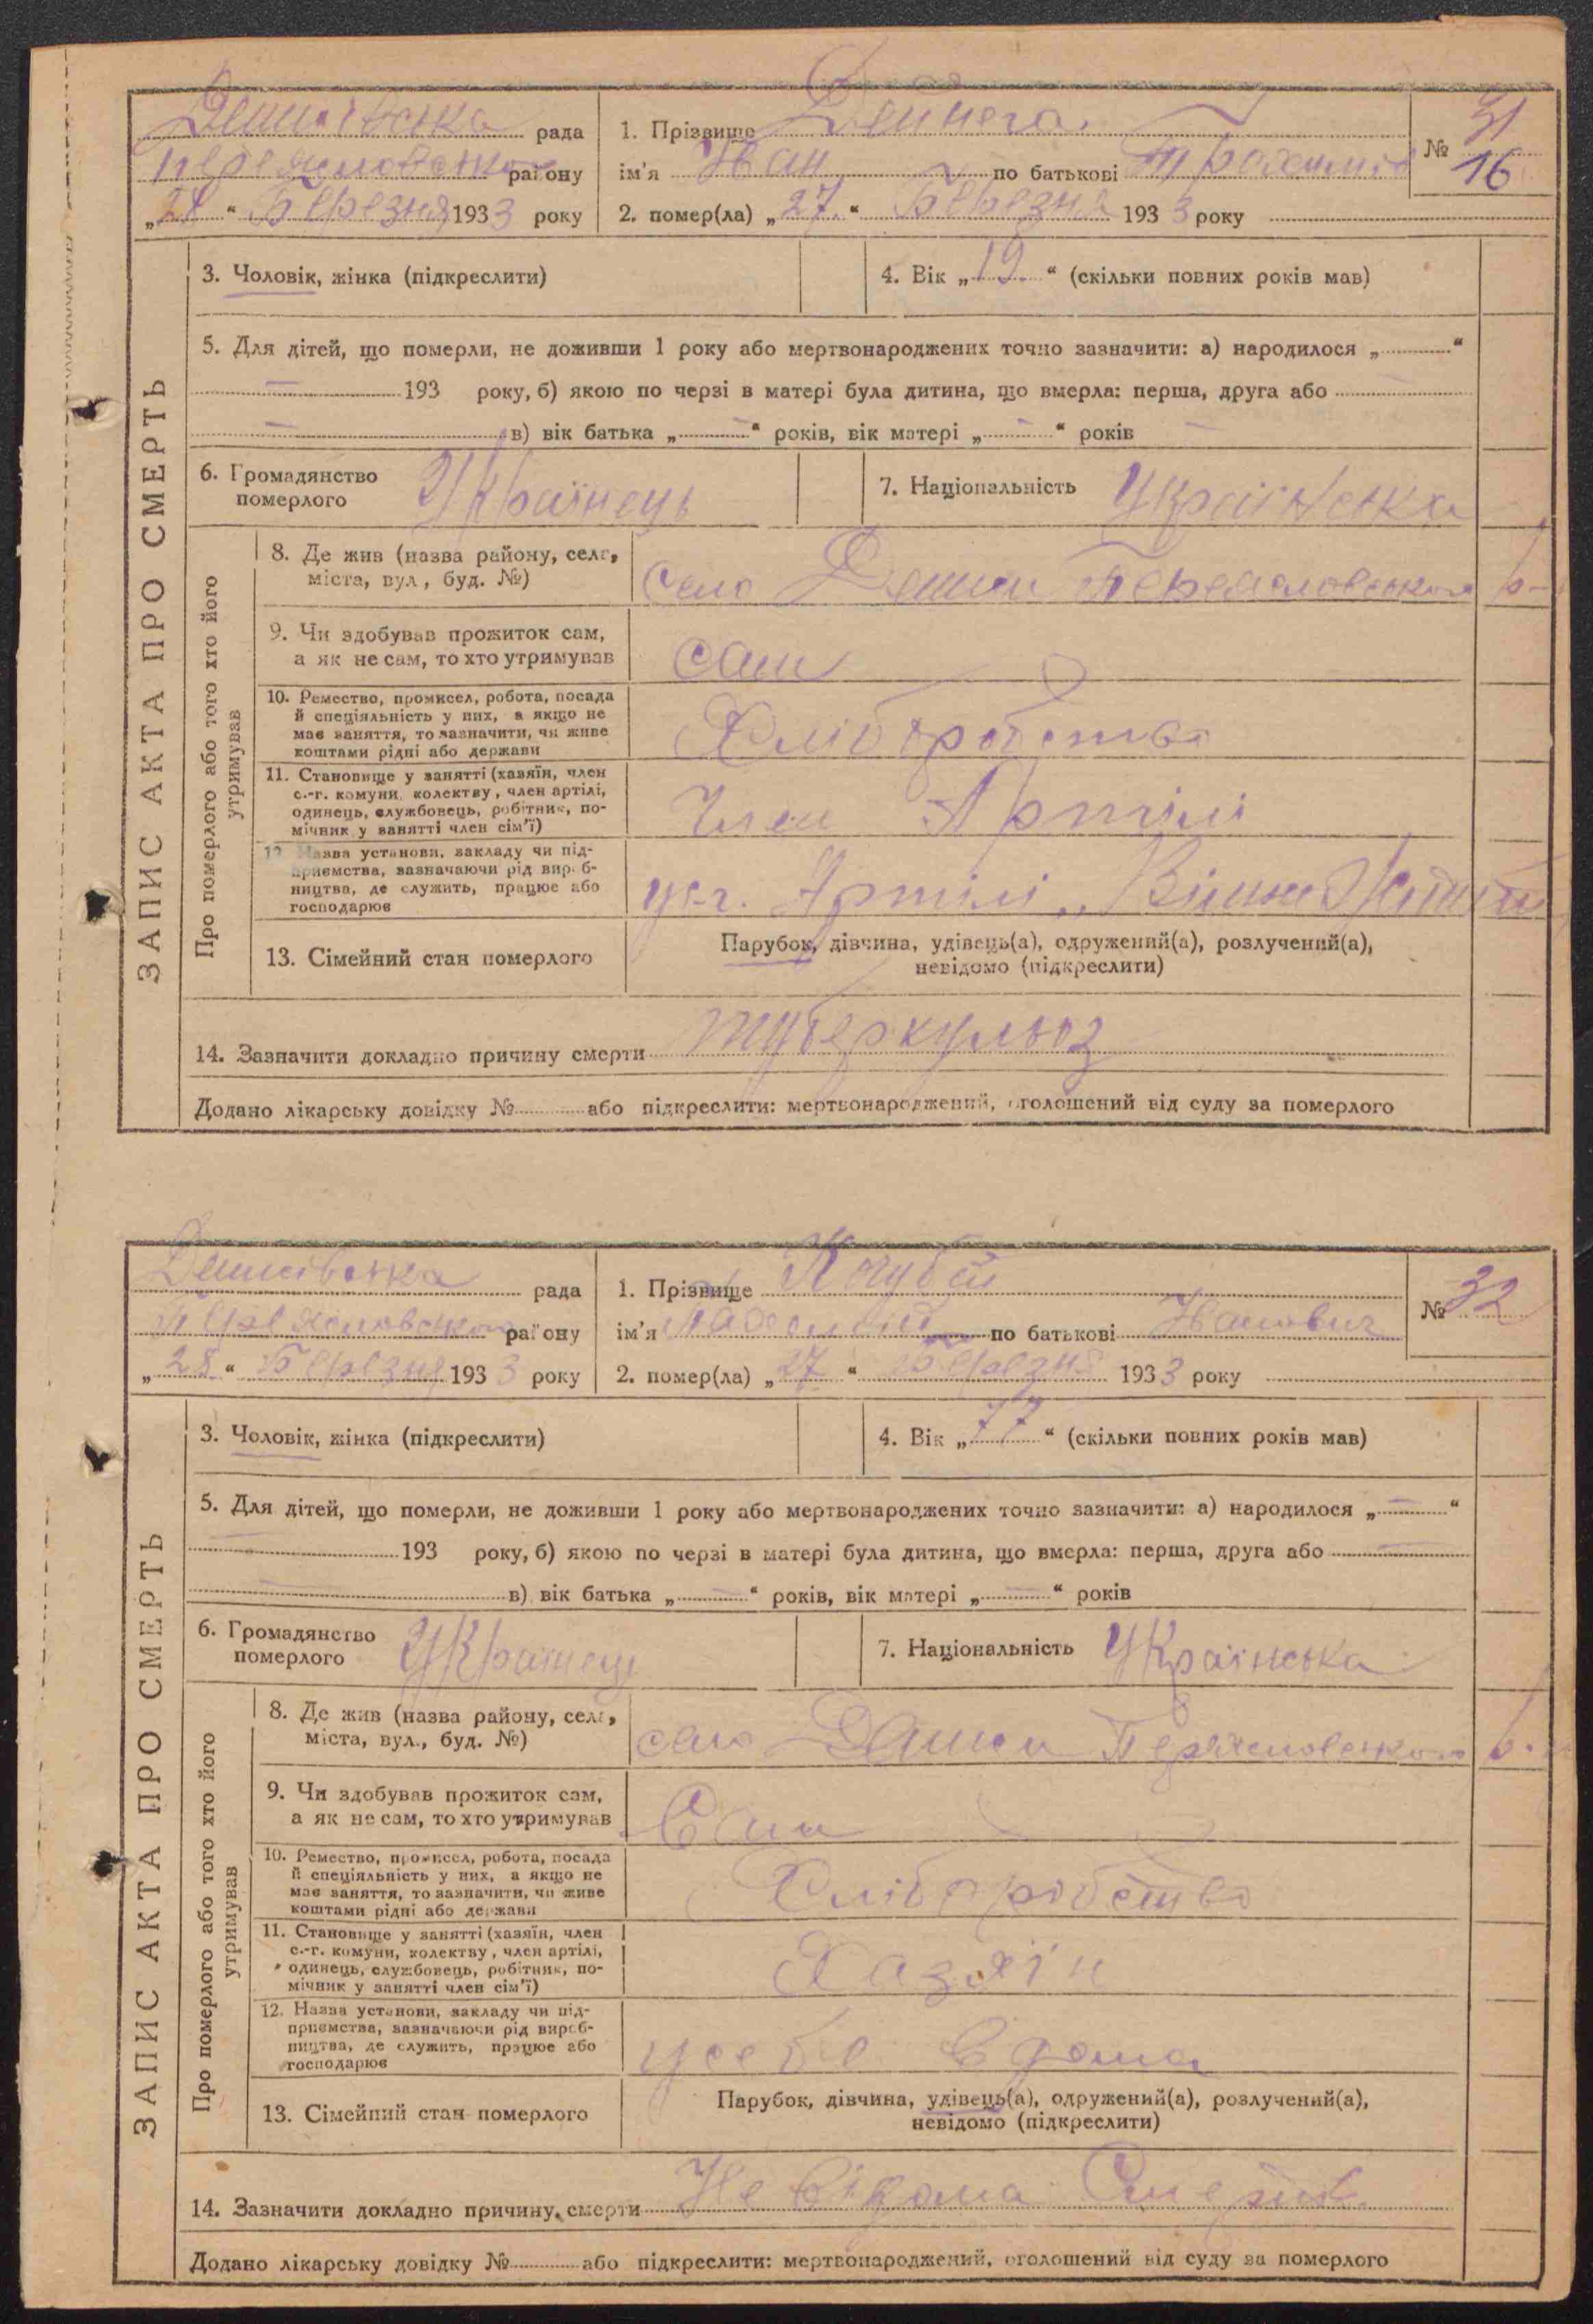 ЗАПИС АКТА ПРО СМЕРТЬ
Демківська рада
Переясловського району
„28“ Березня 1933 року
1. Прізвище Дейнега
ім'я Іван по батькові Трохимов
2. помер(ла) „27.“ Березня 1933 року
№ 31
16
3. Чоловік, жінка (підкреслити)
4. Вік „19“ (скільки повних років мав)
5. Для дітей, що померли, не доживши 1 року або мертвонароджених точно зазначити: а) народилося „ “
— 193 року, б) якою по черзі в матері була дитина, що вмерла: перша, друга або —
— в) вік батька „—“ років, вік матері „—“ років —
6. Громадянство померлого Українець
7. Національність Українська
Про померлого або того хто його утримував
8. Де жив (назва району, села, міста, вул., буд. №) село Демки Переясловського р-
9. Чи здобував прожиток сам, а як не сам, то хто утримував сам
10. Ремество, промисел, робота, посада й спеціяльність у них, а якщо не має заняття, то зазначити, чи живе коштами рідні або держави Хліборобство
11. Становище у занятті (хазяїн, член с.-г. комуни, колективу, член артілі, одинець, службовець, робітник, помічник у занятті член сім'ї) Член Артілі
12. Назва установи, закладу чи підприємства, зазначаючи рід виробництва, де служить, працює або господарює ус-г. Артілі „Вільне Життя
13. Сімейний стан померлого Парубок, дівчина, удівець(а), одружений(а), розлучений(а), невідомо (підкреслити)
14. Зазначити докладно причину смерти туберкульоз
Додано лікарську довідку № або підкреслити: мертвонароджений, оголошений від суду за померлого
ЗАПИС АКТА ПРО СМЕРТЬ
Демківська рада
Переясловського району
„28“ Березня 1933 року
1. Прізвище
ім'я по батькові Іванович
2. помер(ла) „27“ Березня 1933 року
№ 32
3. Чоловік, жінка (підкреслити)
4. Вік „77“ (скільки повних років мав)
5. Для дітей, що померли, не доживши 1 року або мертвонароджених точно зазначити: а) народилося „—“
— 193 року, б) якою по черзі в матері була дитина, що вмерла: перша, друга або —
— в) вік батька „—“ років, вік матері „—“ років
6. Громадянство померлого Українець
7. Національність Українська
Про померлого або того хто його утримував
8. Де жив (назва району, села, міста, вул., буд. №) село Демки Переясловського р.
9. Чи здобував прожиток сам, а як не сам, то хто утримував Сам
10. Ремество, промисел, робота, посада й спеціяльність у них, а якщо не має заняття, то зазначити, чи живе коштами рідні або держави Хліборобство
11. Становище у занятті (хазяїн, член с.-г. комуни, колективу, член артілі, одинець, службовець, робітник, помічник у занятті член сім'ї) Хазяїн
12. Назва установи, закладу чи підприємства, зазначаючи рід виробництва, де служить, працює або господарює усебе вдома
13. Сімейний стан померлого Парубок, дівчина, удівець(а), одружений(а), розлучений(а), невідомо (підкреслити)
14. Зазначити докладно причину смерти Невідома Смерть
Додано лікарську довідку № або підкреслити: мертвонароджений, оголошений від суду за померлого